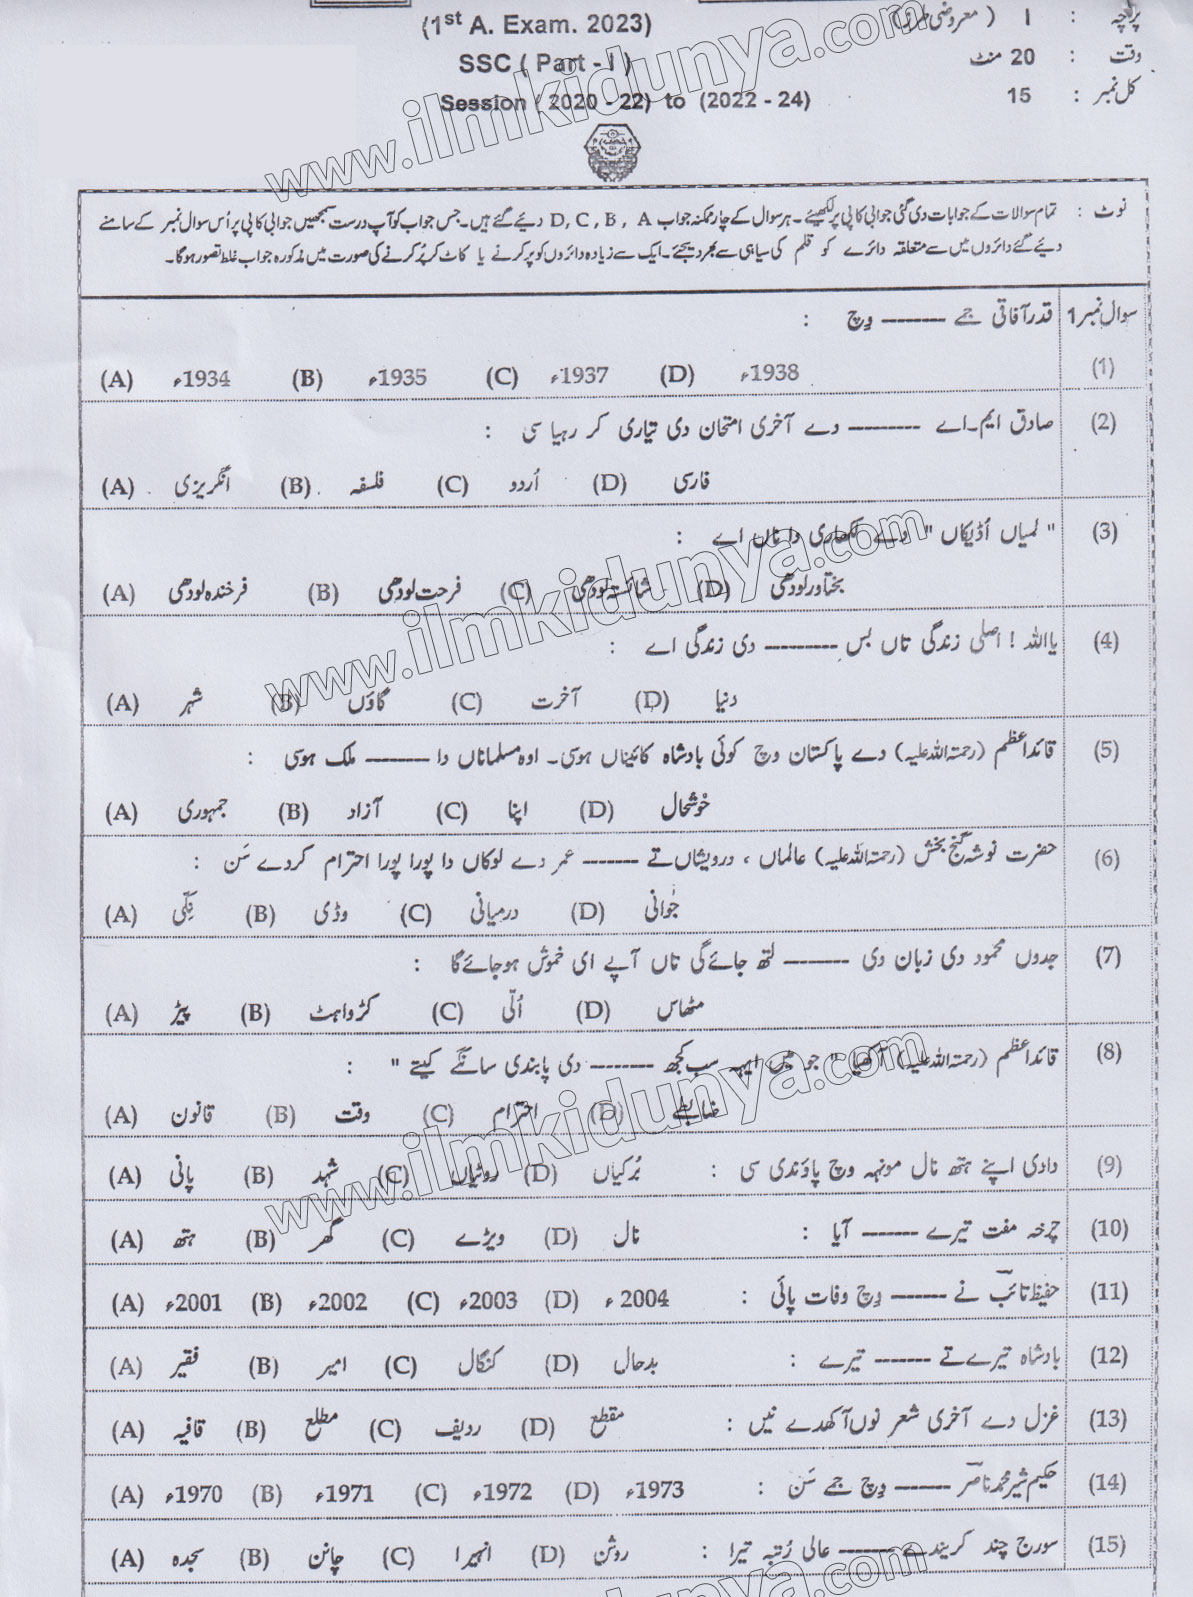 (1st A. Exam. 2023)
SSC ( Part - I )
Session ( 2020 - 22) to (2022 - 24)
پرچہ : I ( معروضی طرز)
وقت : 20 منٹ
کل نمبر : 15
نوٹ : تمام سوالات کے جوابات دی گئی جوابی کاپی پر لکھیئے ۔ ہر سوال کے چار ممکنہ جواب A ، B ، C ، D دیئے گئے ہیں۔ جس جواب کو آپ درست سمجھیں جوابی کاپی پر اُس سوال نمبر کے سامنے
دیئے گئے دائروں میں سے متعلقہ دائرے کو قلم کی سیاہی سے بھر دیجئے۔ ایک سے زیادہ دائروں کو پر کرنے یا کاٹ کر پُر کرنے کی صورت میں مذکورہ جواب غلط تصور ہوگا۔
سوال نمبر 1 قدر آفاقی جمے -------- وِچ :
(1) (A) 1934ء (B) 1935ء (C) 1937ء (D) 1938ء
(2) صادق ایم۔اے --------- دے آخری امتحان دی تیاری کر رہیا سی :
(A) انگریزی (B) فلسفہ (C) اُردو (D) فارسی
(3) " لمیاں اُڈیکاں " دے لکھاری دا ناں اے :
(A) فرخندہ لودھی (B) فرحت لودھی (C) شائستہ لودھی (D) بختاور لودھی
(4) یا اللہ ! اصلی زندگی تاں بس --------- دی زندگی اے :
(A) شہر (B) گاؤں (C) آخرت (D) دنیا
(5) قائداعظم (رحمتہ اللہ علیہ) دے پاکستان وچ کوئی بادشاہ کائیناں ہوسی۔ اوہ مسلماناں دا -------- ملک ہوسی :
(A) جمہوری (B) آزاد (C) اپنا (D) خوشحال
(6) حضرت نوشہ گنج بخش (رحمتہ اللہ علیہ) عالماں ، درویشاں تے ------- عمر دے لوکاں دا پورا پورا احترام کردے سَن :
(A) نِکّی (B) وڈی (C) درمیانی (D) جُوانی
(7) جدوں محمود دی زبان دی -------- لتھ جائے گی تاں آپے ای خموش ہو جائے گا :
(A) پیڑ (B) کڑواہٹ (C) اُلّی (D) مٹھاس
(8) قائداعظم (رحمتہ اللہ علیہ) آکھیا " جو میں ایہہ سب کجھ -------- دی پابندی سانگے کیتے " :
(A) قانون (B) وقت (C) احترام (D) ضابطے
(9) دادی اپنے ہتھ نال مونہہ وچ پاؤندی سی : (A) پانی (B) شہد (C) روٹیاں (D) بُرکیاں
(10) چرخہ مفت تیرے ------- آیا : (A) ہتھ (B) گھر (C) ویڑے (D) نال
(11) حفیظ تائبؔ نے ------- وِچ وفات پائی : (A) 2001ء (B) 2002ء (C) 2003ء (D) 2004 ء
(12) بادشاہ تیرے تے ------- تیرے : (A) فقیر (B) امیر (C) کنگال (D) بدحال
(13) غزل دے آخری شعر نوں آکھدے نیں : (A) قافیہ (B) مطلع (C) ردیف (D) مقطع
(14) حکیم شیر محمد ناصرؔ ------- وِچ جمے سَن : (A) 1970ء (B) 1971ء (C) 1972ء (D) 1973ء
(15) سورج چند کریندے ------- عالی رُتبہ تیرا : (A) سجدہ (B) چانن (C) انہیرا (D) روشن
www.ilmkidunya.com
www.ilmkidunya.com
www.ilmkidunya.com